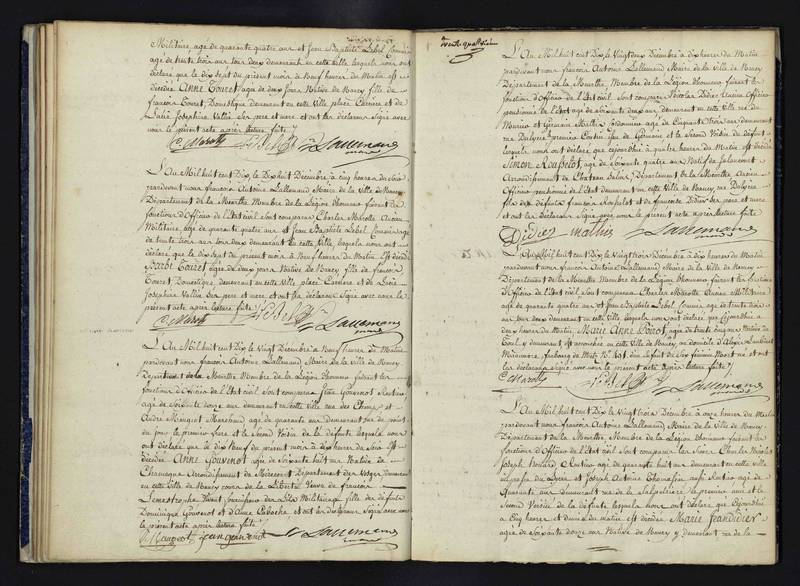 Militaire, agé de quarante quatre ans et Jean Baptiste Lebel Commis
agé de trente trois ans tous deux demeurant en cette ville lesquels nous ont
déclaré que le dix sept du présent mois à Neuf heures du Matin est
décédée Anne Touzet agée de deux jours Native de Nancy fille de
françois Touzet, Domestique demeurant en cette Ville place Carriere et de
Julie Josephine Vallée Ses pere et mere, et ont les déclarans Signé avec
nous le présent acte après lecture faite /.
C. Marotte Lallemand
L'An Mil huit cent Dix, le Dix huit Décembre à cinq heures du soir
pardevant nous françois Antoine Lallemand Maire de la Ville de Nancy
Département de la Meurthe Membre de la Légion d'honneur faisant les
fonctions d'Officier de l'Etat civil Sont comparus Charles Marotte Ancien
Militaire, agé de quarante quatre ans et Jean Baptiste Lebel Commis agé
de trente trois ans tous deux demeurant en cette Ville, lesquels nous ont
déclaré que le dix sept du présent mois à Neuf heures du Matin est décédée
Barbe Touzet, agée de deux jours Native de Nancy fille de françois
Touzet, Domestique, demeurant en cette Ville place Carriere et de Julie
Josephine Vallée Ses pere et mere et ont les déclarans Signé avec nous le
présent acte après lecture faite /.
C. Marotte Lallemand
L'An Mil huit cent Dix le Vingt Décembre à Neuf heures du Matin
pardevant nous françois Antoine Lallemand Maire de la Ville de Nancy
Département de la Meurthe Membre de la Légion d'honneur faisant les
fonctions d'Officier de l'Etat civil Sont comparus Jean Gouvenot Rentier
agé de Soixante douze ans demeurant en cette Ville rue des Champs et
André Maugeot Marchand agé de quarante ans demeurant rue du pont
un pour le premier frere et le Second Voisin de la défunte lesquels nous
ont déclaré que le dix Neuf du présent mois à dix heures du Soir Est
décédée Anne Gouvenot agée de Soixante huit ans Native de
Chamagne Arrondissement de Mirecourt Département des Vosges demeurant
en cette Ville de Nancy cours de la Liberté Veuve de françois
Lemestrophe Vivant fournisseur des Lits Militaires fille des défunts
Dominique Gouvenot et d'Anne Caboche et ont les déclarans Signé avec nous
le présent acte après lecture faite /.
A Maugeot jean gouvenot Lallemand
trente quatrième
L'An Mil huit cent Dix le Vingt deux Décembre à dix heures du Matin
pardevant nous françois Antoine Lallemand Maire de la Ville de Nancy
Département de la Meurthe, Membre de la Légion d'honneur faisant les
fonctions d'Officier de l'Etat civil Sont comparus Nicolas Didier Ancien Officier
pensionné de l'Etat agé de Soixante deux ans, demeurant en cette Ville rue du
et Germain Mathis Cordonnier agé de Cinquante trois ans demeurant
rue Derlyse le premier Cousin de Germain et le Second Voisin du défunt
lesquels nous ont déclaré que cejourd'hui à quatre heures du Matin est décédé
Simon Rouselot, agé de Soixante quatre ans Natif de Jalaucourt
Arrondissement de Chateau Salins, Département de la Meurthe Ancien
Officier pensionné de l'Etat demeurant en cette Ville de Nancy rue Derlyse
fils des défunts françois Rouselot et de françoise Didier Ses pere et mere
et ont les déclarans Signé avec nous le présent acte après lecture faite
Didier mathis Lallemand
L'An Mil huit cent Dix, le Vingt trois Décembre à dix heures du Matin
pardevant nous françois Antoine Lallemand Maire de la Ville de Nancy
Département de la Meurthe Membre de la Légion d'honneur faisant les fonctions
d'Officier de l'Etat civil, Sont comparus Charles Marotte Ancien Militaire
agé de quarante quatre ans et Jean Baptiste Lebel Commis, agé de trente trois
ans tous deux demeurant en cette Ville lesquels nous ont déclaré que Cejourd'hui à
deux heures du Matin, Marie Anne Poirot, agée de trente cinq ans Native de
Toul, y demeurant est accouchée en cette Ville de Nancy, au domicile d'Aloyse Lambert
faubourg de Metz No 101. d'un Enfant du Sexe féminin Mort né et ont
les déclarans signé avec nous le présent acte après lecture faite /.
C. Marotte Lallemand
L'An Mil huit cent Dix, le Vingt trois Décembre à onze heures du Matin
pardevant nous françois Antoine Lallemand Maire de la Ville de Nancy
Département de la Meurthe, Membre de la Légion d'honneur faisant les
fonctions d'Officier de l'Etat civil Sont comparus les Sieurs Charles Nicolas
Joseph agé de quarante huit ans demeurant en cette ville
place du Lycée et Joseph Antoine agé de
Quarante ans demeurant rue de la Salpétrière le premier ami et le
Second Voisin de la défunte, lesquels nous ont déclaré que Cejourd'hui
à Cinq heures et demie du matin est décédée Marie Grandidier
agée de Soixante douze ans Native de Nancy y demeurant rue de la